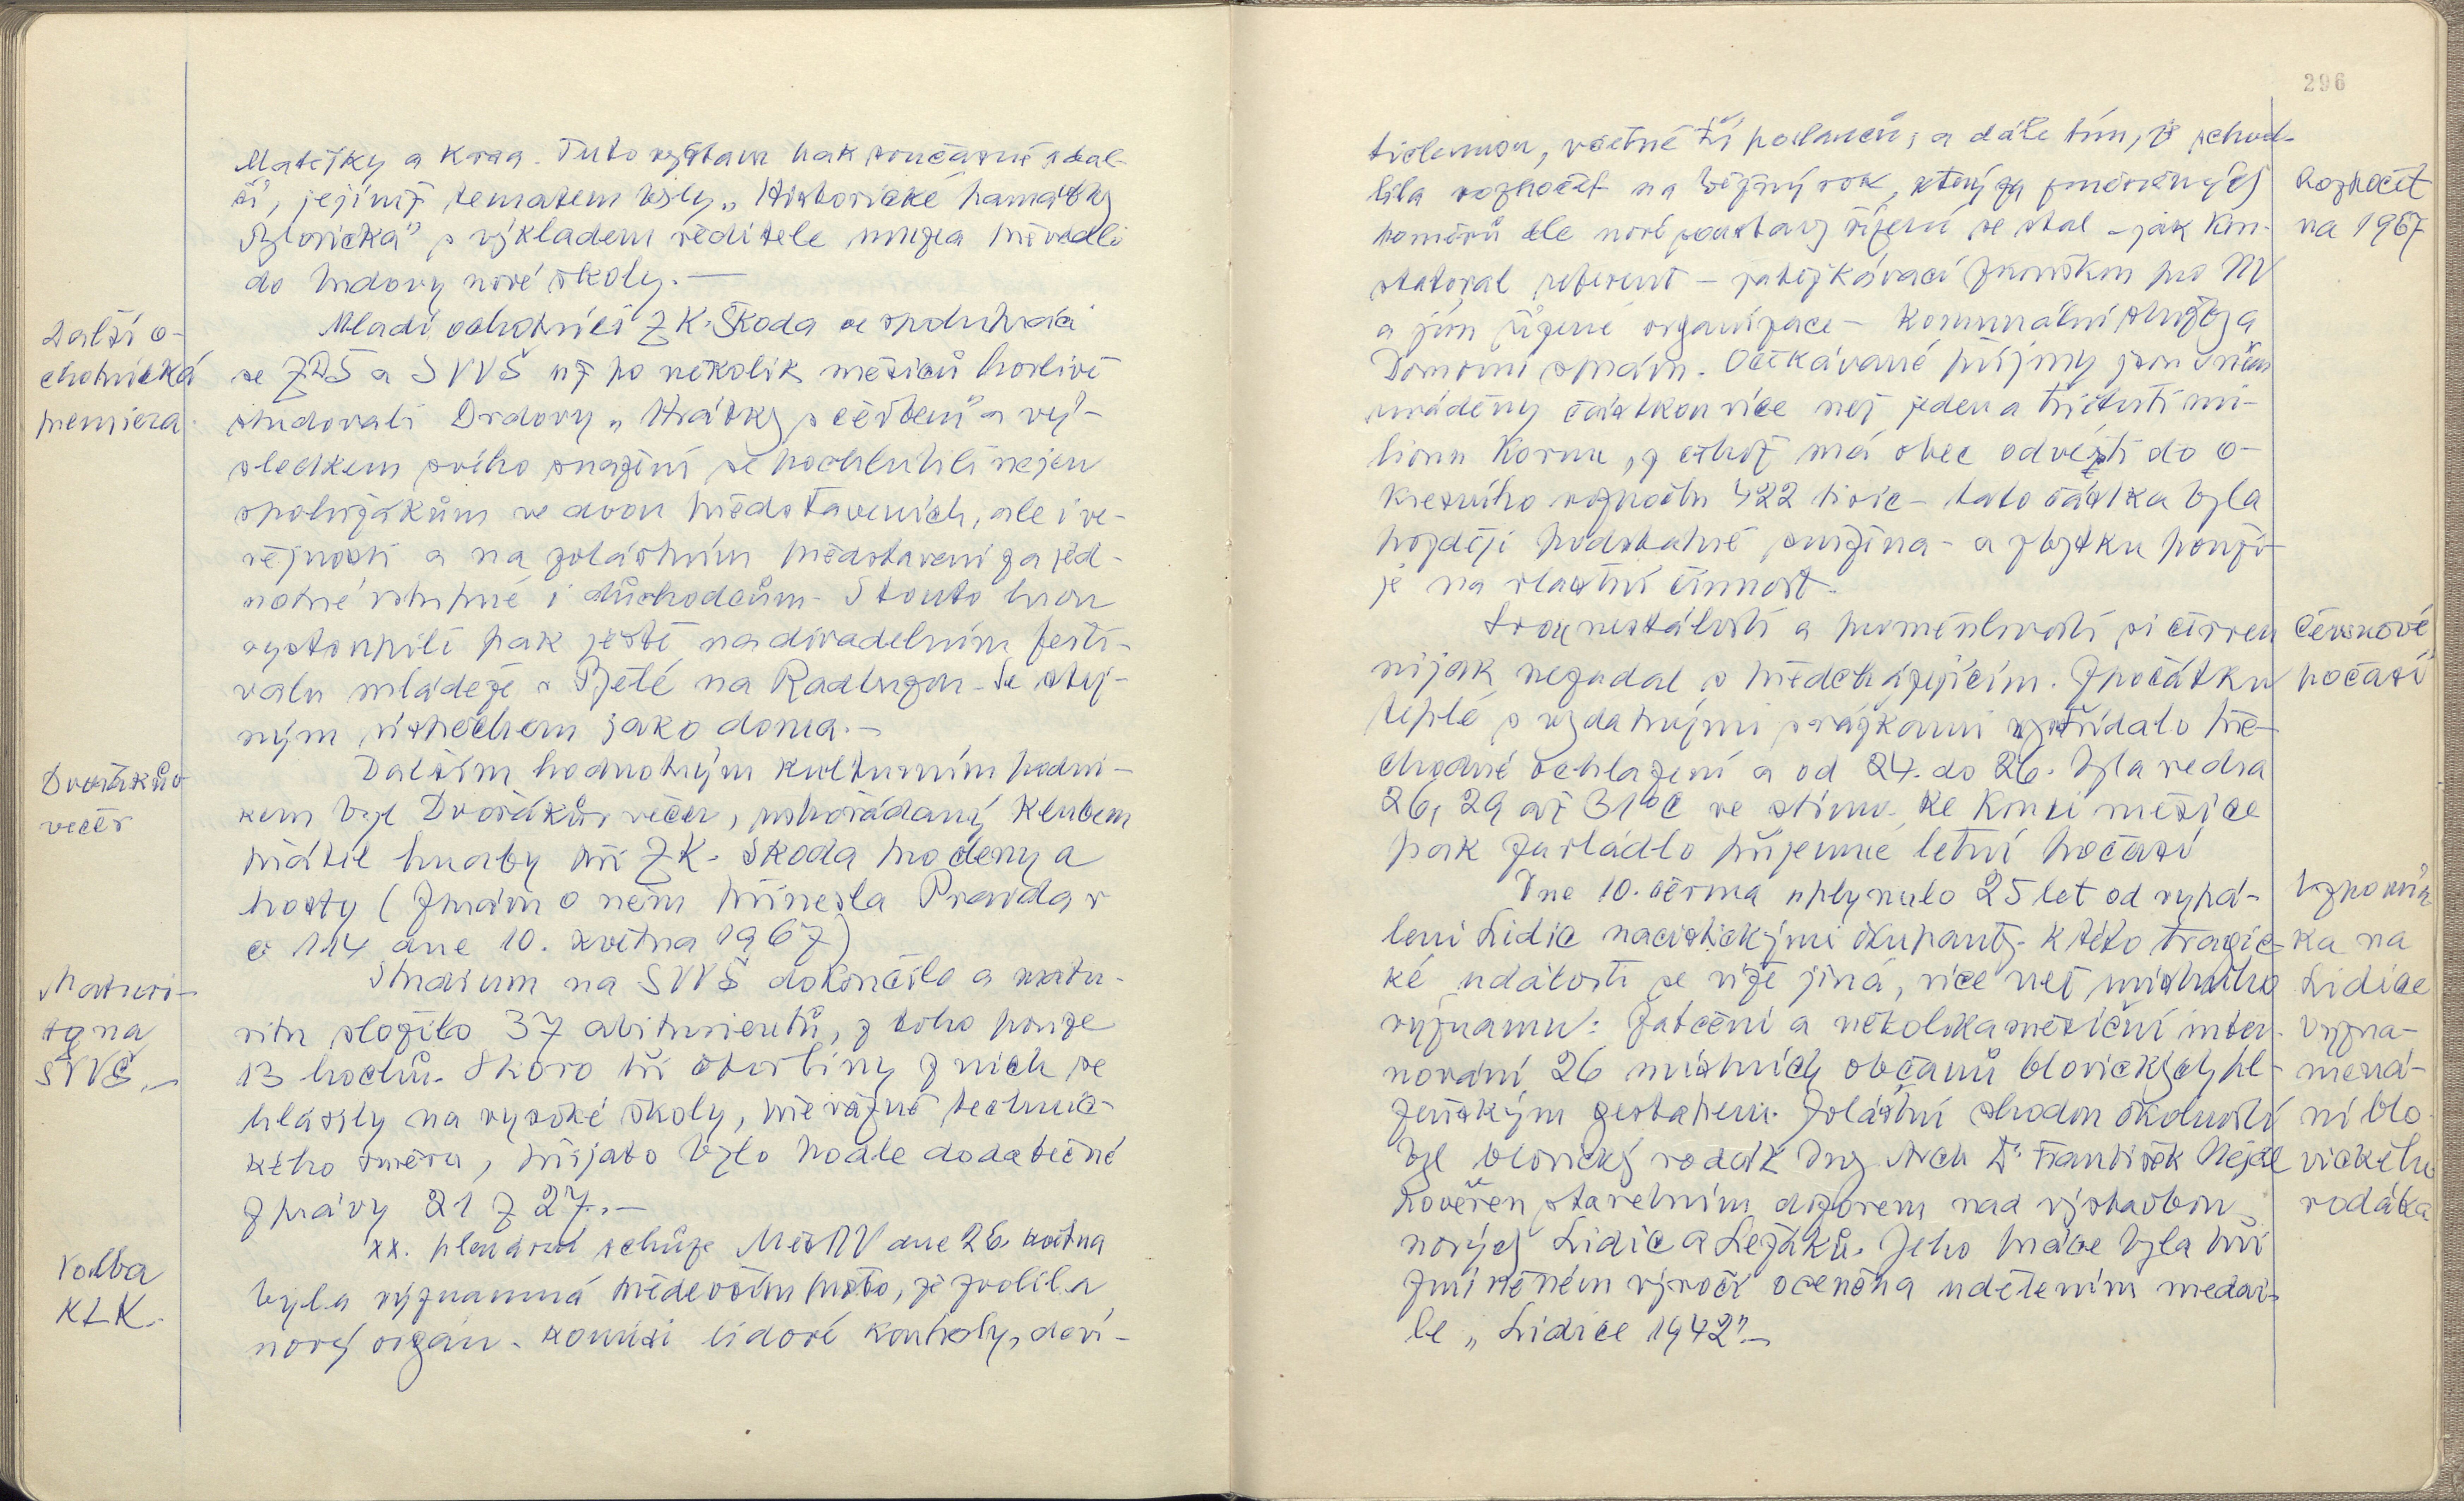 Matějky a Krsa. Tuto výstavu pak současně s dal-
ší, jejímž tematem byly „Historické památky
Blovicka" s výkladem ředitele muzea převedli
do budovy nové školy.—
Další o-
chotnická
premiera
Mladí ochotníci ZK. Škoda se spoluhráči
ze ZDŠ a SVVŠ už po několik měsíců horlivě
studovali Drdovy „Hrátky s čertem" a vý-
sledkem svého snažení se pochlubili nejen
spolužákům ve dvou představeních, ale i ve-
řejnosti a na zvláštním představení za jed-
notné vstupné i důchodcům. S touto hrou
vystoupili pak ještě na divadelním festi-
valu mládeže v Bělé na Radbuzou. Se stej-
ným úspěchem jako doma.—
Dvořákův
večer
Dalším hodnotným kulturním podni-
kem byl Dvořákův večer, uspořádaný Klubem
přátel hudby při ZK. Škoda pro členy a
hosty (Zprávu o něm přinesla Pravda v
č 114 dne 10. května 1967)
Maturi-
ty na
SVVŠ.—
Studium na SVVŠ dokončilo a matu-
ritu složilo 37 abiturientů, z toho pouze
13 hochů. Skoro tři čtvrtiny z nich se
hlásily na vysoké školy, převážně technic-
kého směru, přijato bylo podle dodatečné
zprávy 21 z 27.—
Volba
KLK.
XX. plenární schůze MěstNV dne 26. května
byla významná především proto, že zvolila
nový orgán - komisi lidové kontroly, deví-
296
tičlennou, včetně tří poslanců, a dále tím, že schvá-
lila rozpočet na běžný rok, který za změněných
poměrů dle nové soustavy řízení se stal - jak kon-
statoval referent - zatěžkávací zkouškou pro NV
a jím řízené organizace - Komunální služby a
Domovní správu. Očekávané příjmy jsou v něm
uváděny částkou více než jeden a třičtvrti mi-
lionu korun, z čehož má obec odvézti do o-
kresního rozpočtu 422 tisíc - tato částka byla
později podstatně snížena - a zbytku použi-
je na vlastní činnost.
Rozpočet
na 1967
Svou nestálostí a proměnlivostí si červen
nijak nezadal s předcházejícím. Zpočátku
teplé s vydatnými srážkami vystřídalo pře-
chodné ochlazení a od 24. do 26. byla vedra
26, 29 až 31°C ve stínu. Ke konci měsíce
pak zavládlo příjemné letní počasí
Červnové
počasí
Dne 10. června uplynulo 25 let od vypá-
lení Lidic nacistickými okupanty. K této tragic-
ké události se víže jiná, více než místního
významu: Zatčení a několikaměsíční inter-
nování 26 místních občanů blovických pl-
zeňským gestapem. Zvláštní shodou okolností
byl blovický rodák Ing. Arch Dr. František
pověřen stavebním dozorem nad výstavbou
nových Lidic a Ležáků. Jeho práce byla při
zmíněném výročí oceněna udělením medai-
le „Lidice 1942".—
Vzpomín
ka na
Lidice
Vyzna-
mená-
ní blo
vického
rodáka